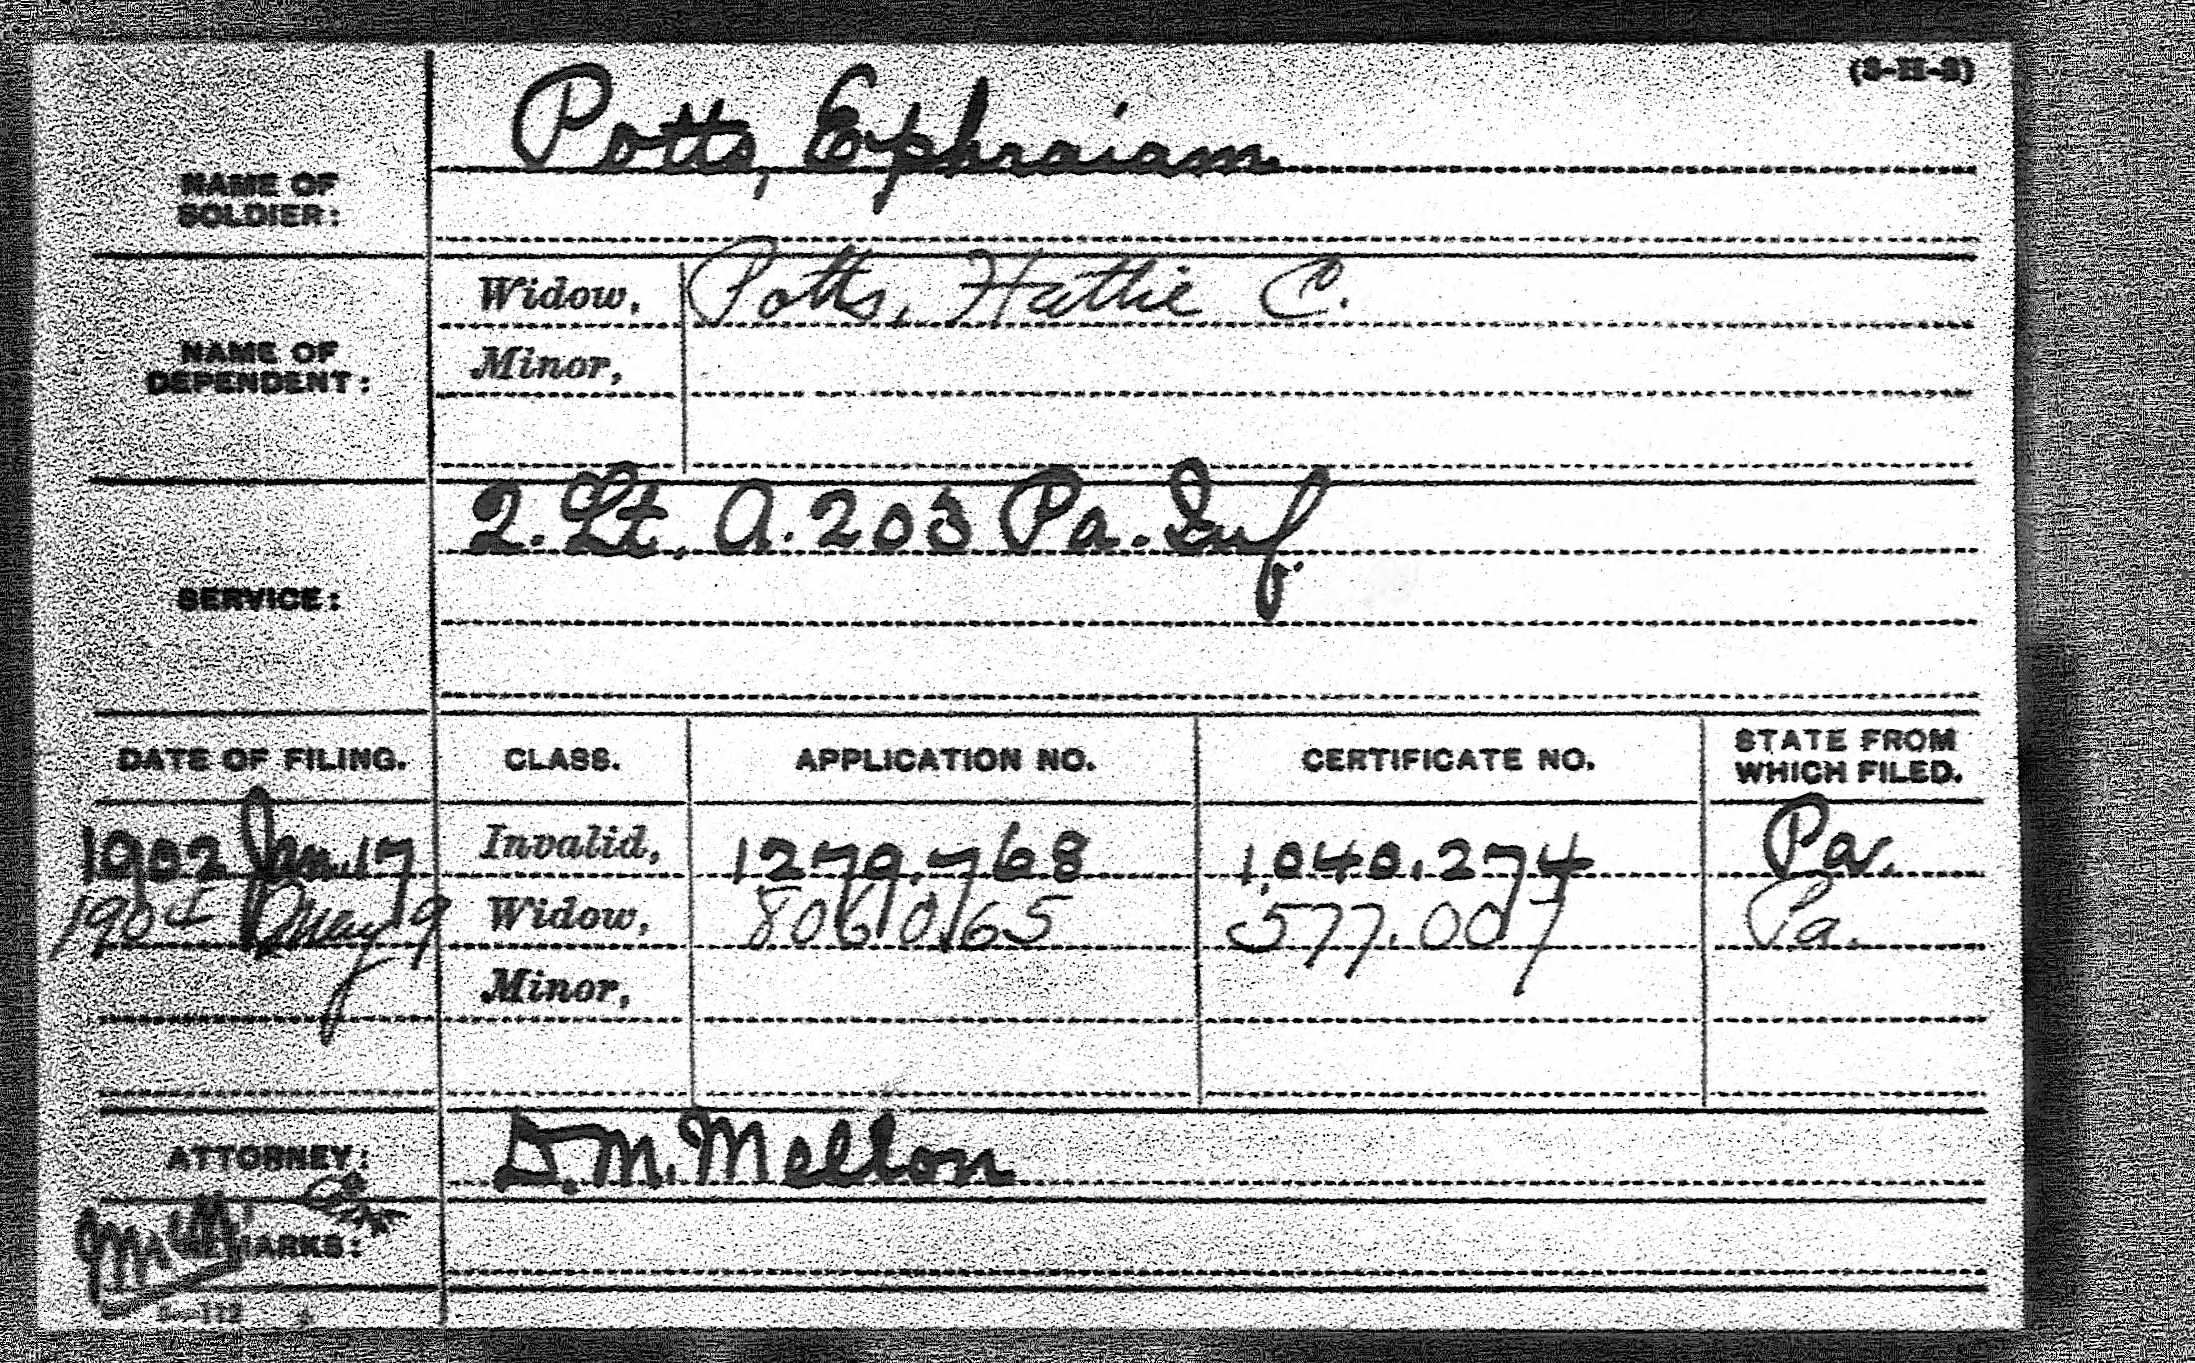 (3-H-3)
NAME OF SOLDIER:
Potts, Ephraiam
NAME OF DEPENDENT:
Widow, Potts, Hattie C.
Minor,
SERVICE:
2. Lt. A. 203 Pa. Inf.
DATE OF FILING. CLASS. APPLICATION NO. CERTIFICATE NO. STATE FROM WHICH FILED.
1902 Jan. 17 Invalid, 1270,768 1,040,274 Pa.
1904 May 9 Widow, 806065 577,007 Pa.
Minor,
ATTORNEY: D. M. Mellon
REMARKS: